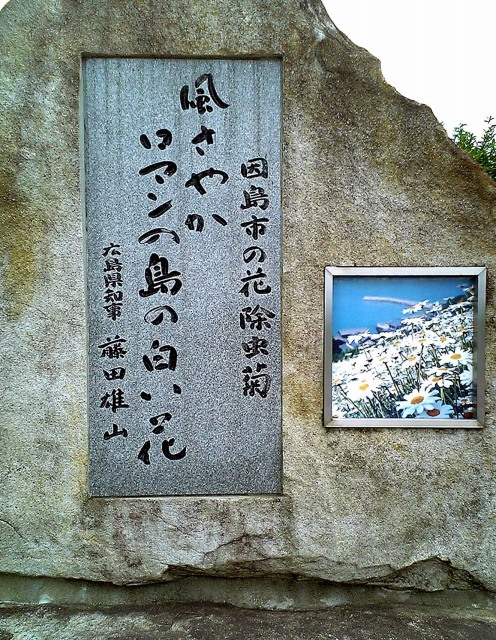 因島市の花除虫菊
風さやか
ロマンの島の白い花
広島県知事 藤田雄山